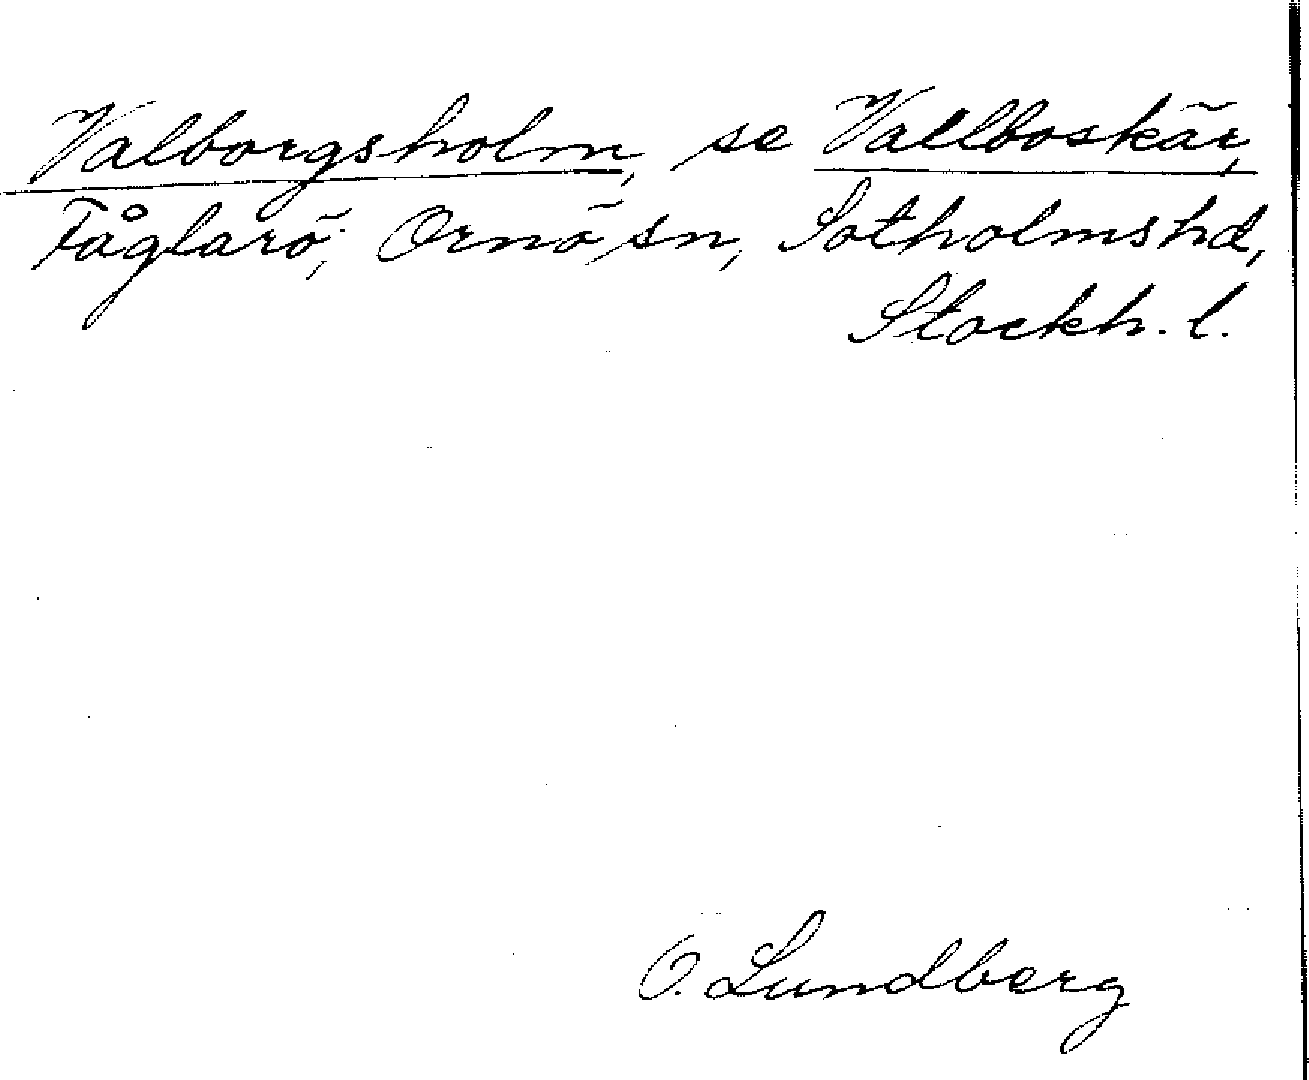 Valborgsholm, se Vallboskär,
Fåglarö, Ornö sn, Sotholms hd,
Stockh. l.
O. Lundberg